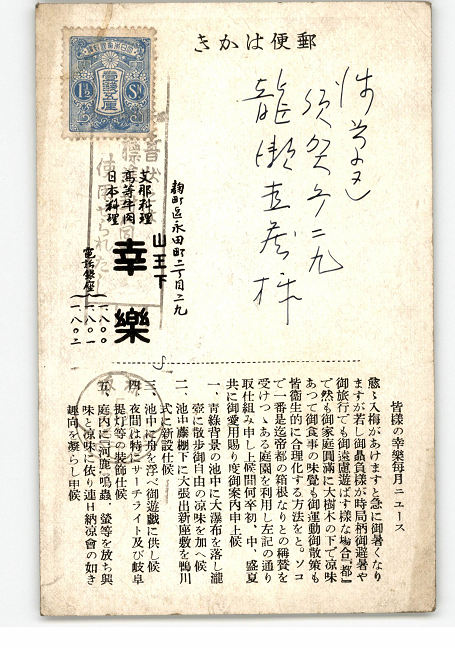 郵便はかき
壹錢五厘
1½ Sn
麹町區永田町二丁目二九
山王下
幸樂
支那料理
高等牛肉
日本料理
電話銀座
一八〇〇
一八〇一
一八〇二
皆樣の幸樂每月ニュース
愈々入梅があけますと急に御暑くなり
ますが若し御贔負樣が時局柄御避暑や
御旅行でも御遠慮遊ばす樣な場合「都」
で然も御家庭圓滿に大樹木の下で凉味
あつて御食事の味覺も御運動御散策も
皆衞生的に合理化する方法をと。ソコ
で一番是迄帝都の箱根なりとの稱賛を
受けつゝある庭園を利用し左記の通り
取仕組み申し上候間何卒初、中、盛夏
共に御愛用賜り度御案内申上候
一、靑綠背景の池中に大瀑布を落し瀧
壺に散步御自由の凉味を加へ候
二、池中藤棚下に大張出新座敷を鴨川
式に新設仕候
三、池中に舟を浮べ御遊戲に供し候
四、夜間は特にサーチライト及び岐阜
提灯等の裝飾仕候
五、庭內に河鹿、鳴蟲、螢等を放ち興
味と凉味に依り連日納凉會の如き
趣向を凝らし申候